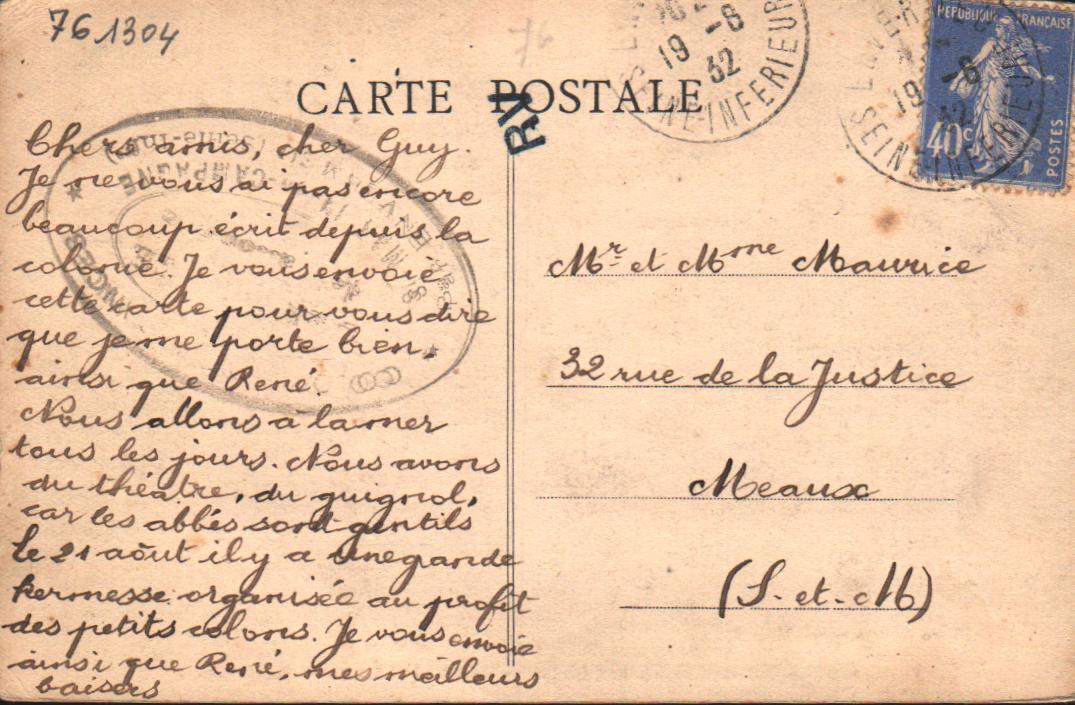 761304
CARTE POSTALE
RV
19-8
32
SEINE INFERIEURE
REPUBLIQUE FRANCAISE
40c
POSTES
19 -8
32
SEINE INFERIEURE
CAMPAGNE
Chers amis, cher Guy.
Je ne vous ai pas encore
beaucoup écrit depuis la
colonie. Je vous envoie
cette carte pour vous dire
que je me porte bien,
ainsi que René.
Nous allons a la mer
tous les jours. Nous avons
du théâtre, du guignol,
car les abbés sont gentils
le 21 aôut il y a une grande
kermesse organisée au profit
des petits colons. Je vous envoie
ainsi que René, mes meilleurs
baisers
Mr et Mme Maurice
32 rue de la Justice
Meaux
(S.-et-M)